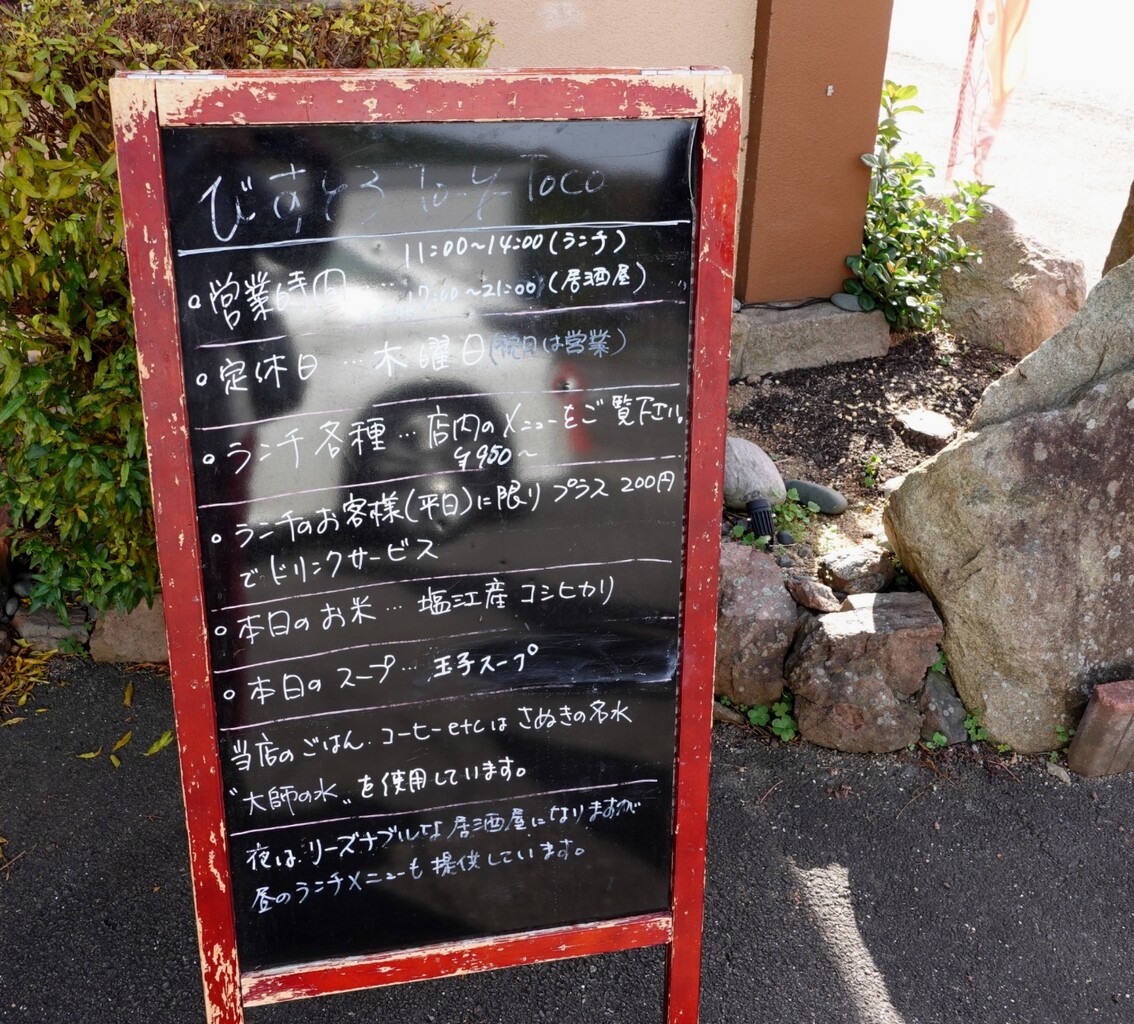 びすとろ Toco
11:00〜14:00(ランチ)
○営業時間… 17:00〜21:00(居酒屋)
○定休日…木曜日(祝日は営業)
○ランチ各種…店内のメニューをご覧下さい。
¥950〜
○ランチのお客様(平日)に限りプラス200円
でドリンクサービス
○本日のお米…塩江産コシヒカリ
○本日のスープ…玉子スープ
当店のごはん.コーヒーetcはさぬきの名水
"大師の水"を使用しています。
夜は、リーズナブルな居酒屋になりますが
昼のランチメニューも提供しています。